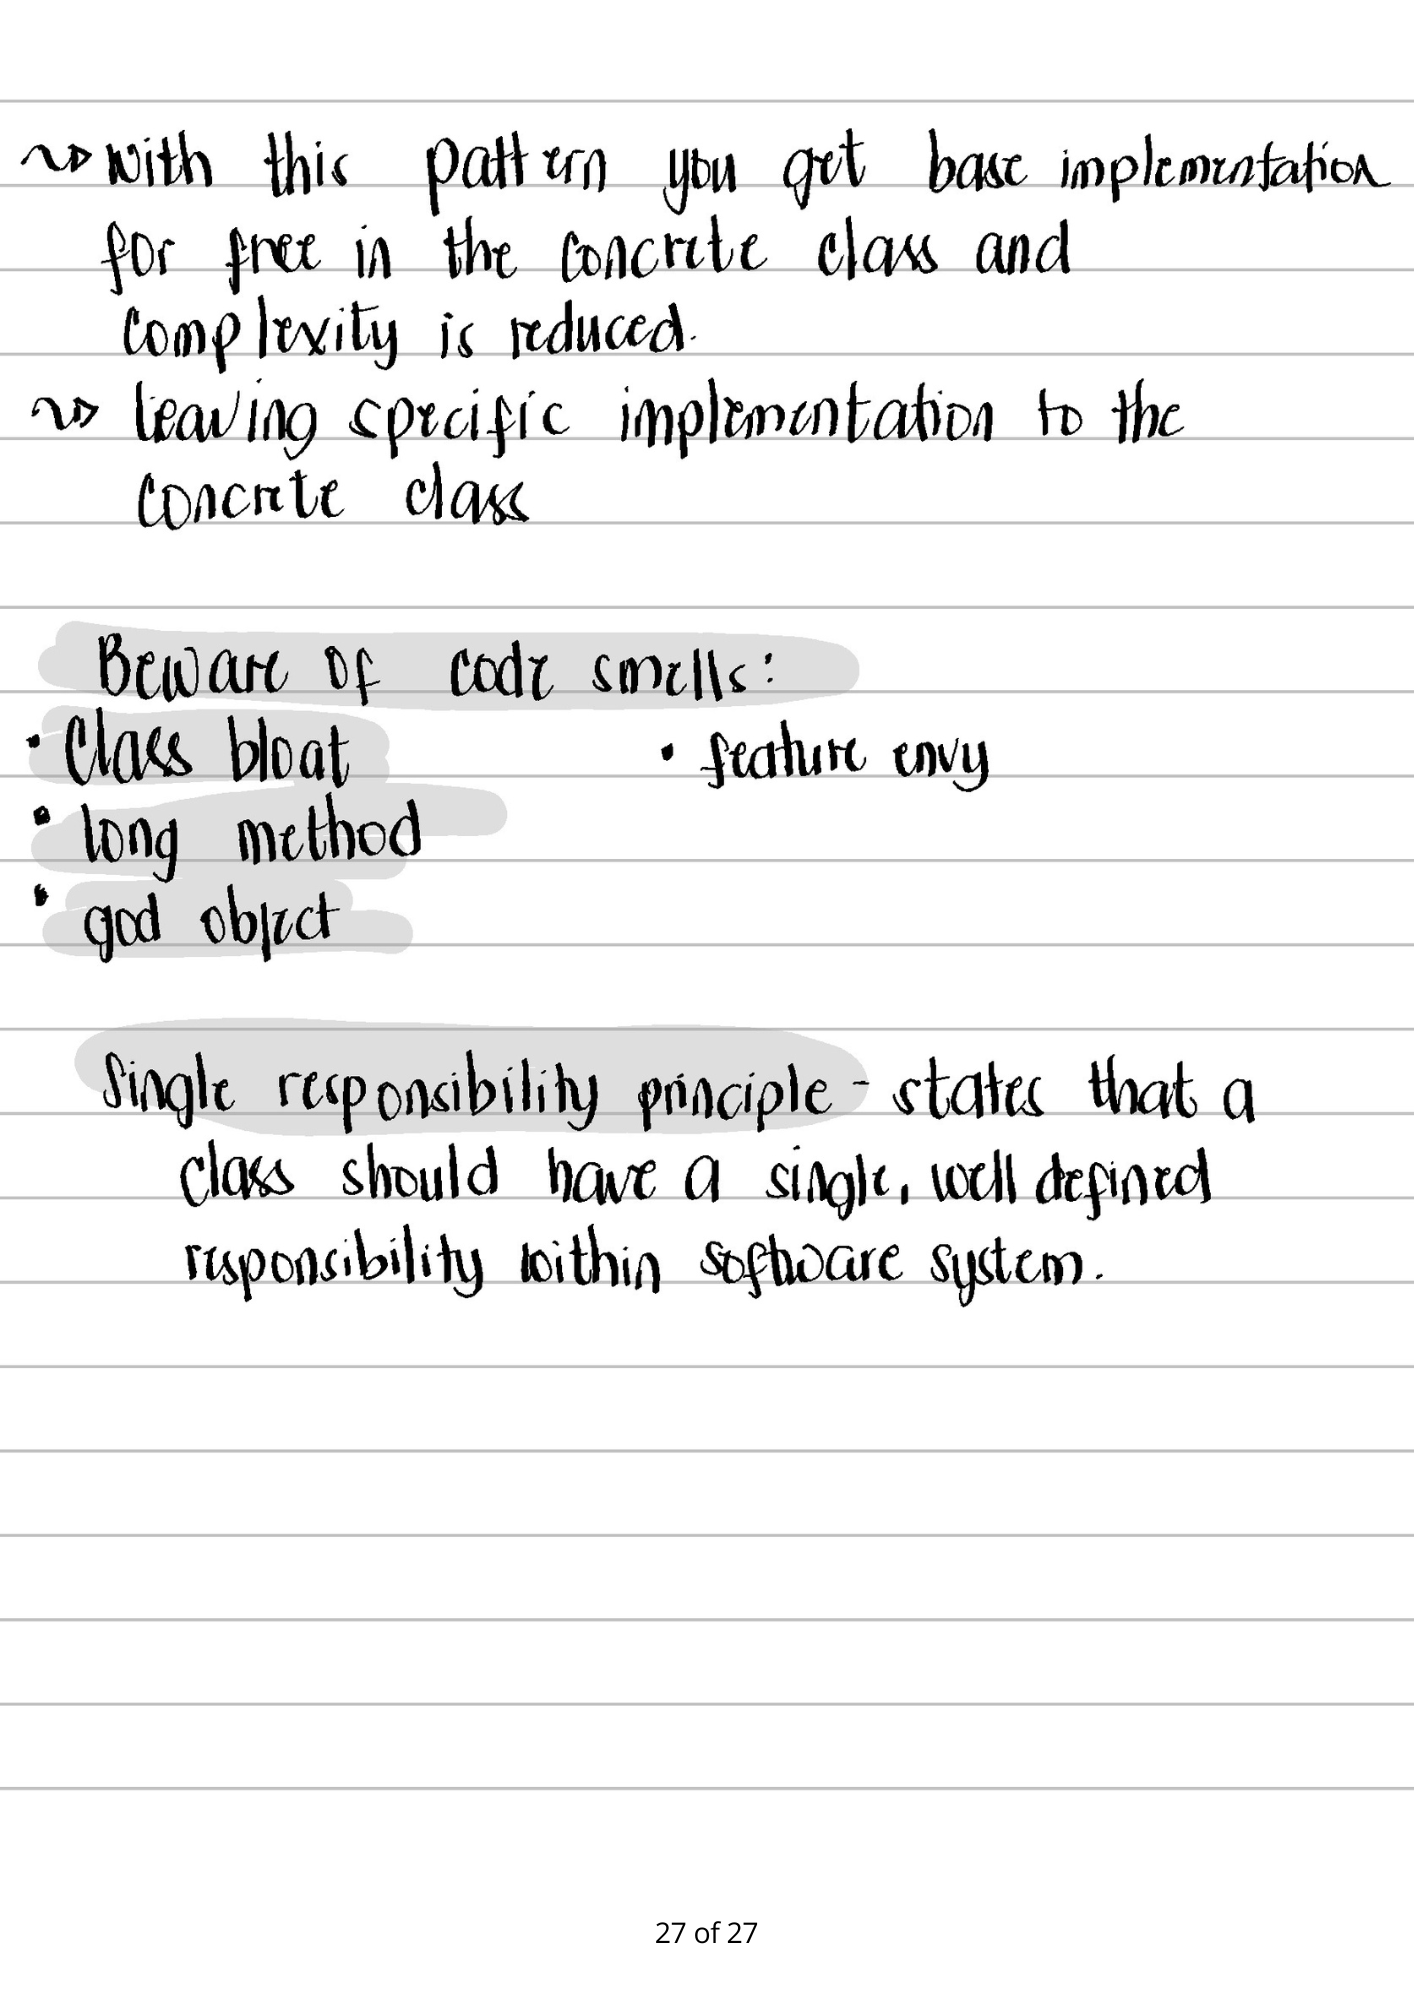 with this pattern you get base implementation
for free in the concrete class and
complexity is reduced.
leaving specific implementation to the
concrete class
Beware of code smells:
• Class bloat
• feature envy
• long method
• god object
Single responsibility principle - states that a
class should have a single, well defined
responsibility within software system.
27 of 27